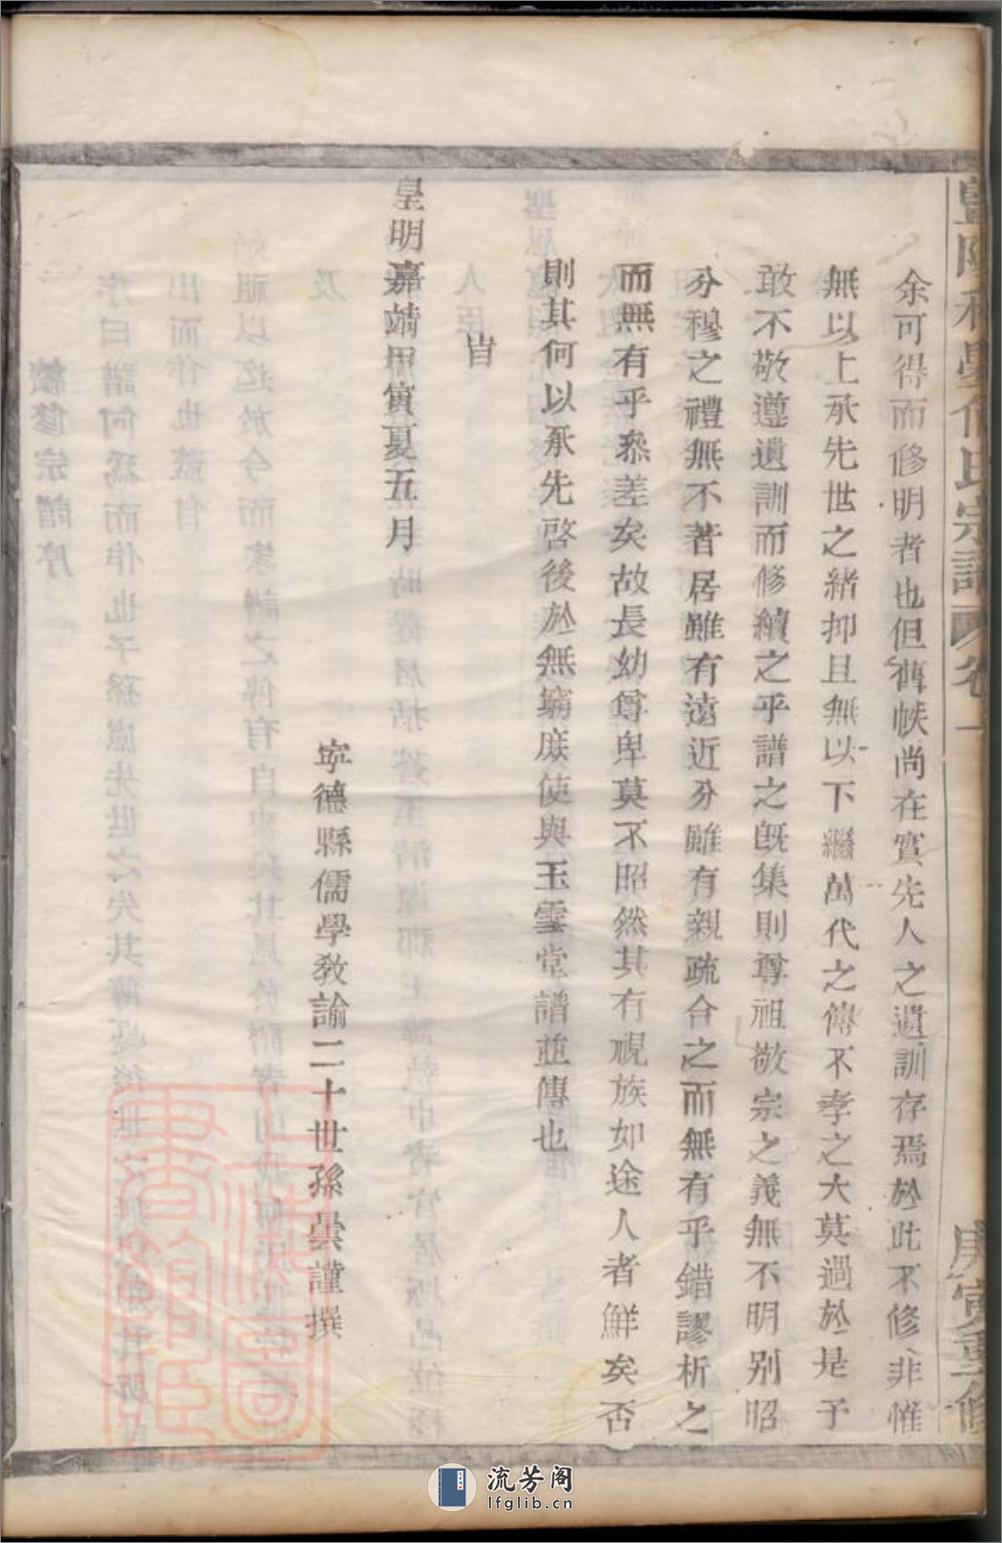 余可得而修明者也但舊帙尚在實先人之遺訓存焉於此不修非惟
無以上承先世之緒抑且無以下繼萬代之傳不孝之大莫過於是予
敢不敬遵遺訓而修續之乎譜之旣集則尊祖敬宗之義無不明別昭
分穆之禮無不著居雖有遠近分雖有親疏合之而無有乎錯謬析之
而無有乎叅差矣故長幼尊卑莫不昭然其有視族如途人者鮮矣否
則其何以承先啓後於無窮庶使與玉雪堂譜並傳也
旹
皇明嘉靖甲寅夏五月
寧德縣儒學敎諭二十世孫曇謹撰
氏宗譜
卷一
庚寅重修
流芳阁
lfglib.cn